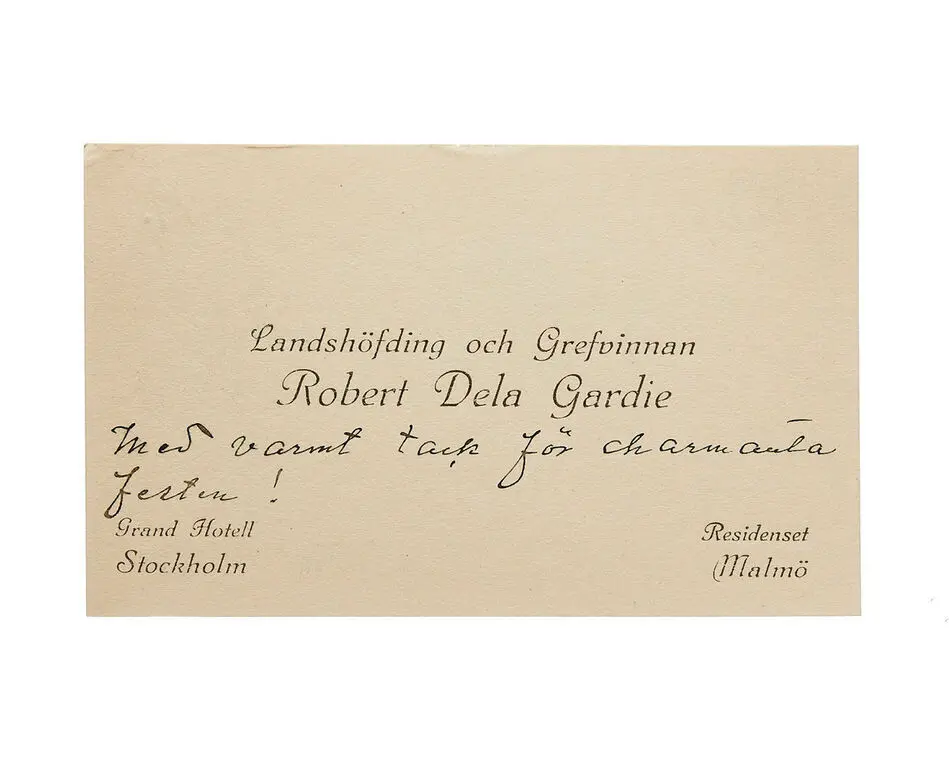 Landshöfding och Grefvinnan
Robert Dela Gardie
Med varmt tack för charmanta
festen !
Grand Hotell
Stockholm
Residenset
Malmö